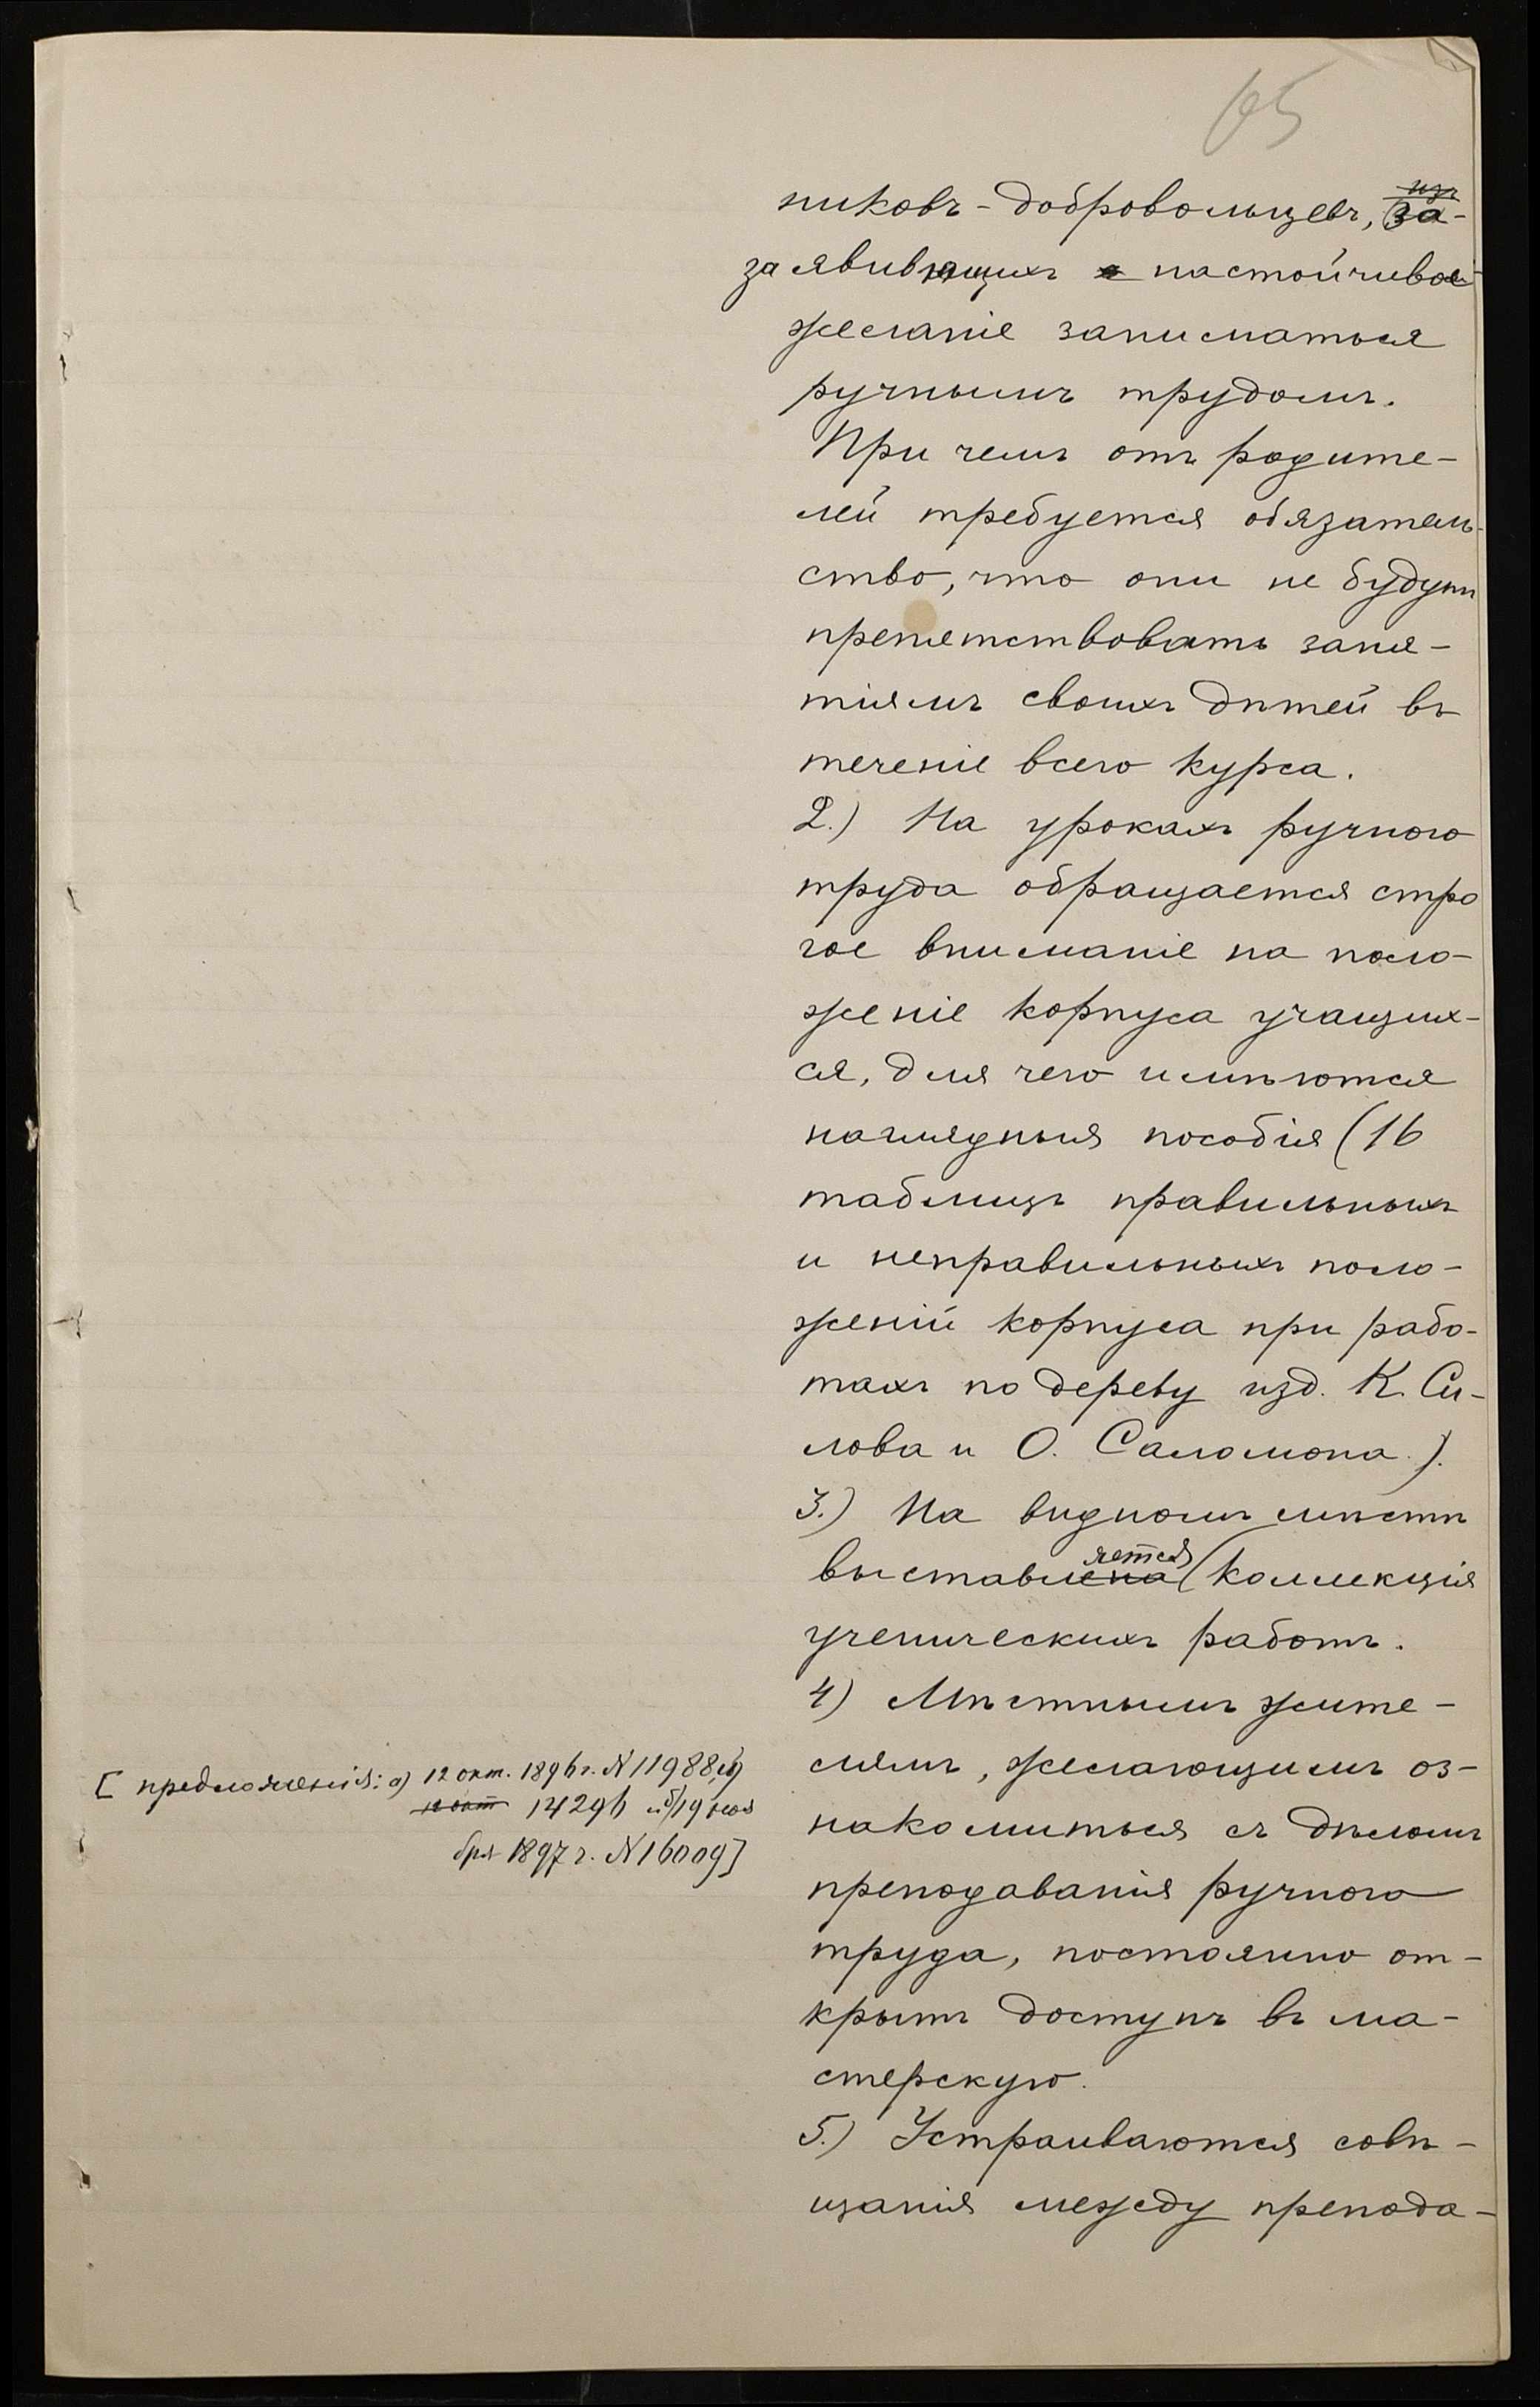 65
никовъ-добровольцевъ, за-
заявивющихъ настойчивое
желаніе заниматься
ручнымъ трудомъ.
При чемъ отъ родите-
лей требуется обязатель-
ство, что они не будутъ
препятствовать заня-
тіямъ своихъ дѣтей въ
теченіе всего курса.
2.) На урокахъ ручного
труда обращается стро
гое вниманіе на поло-
женіе корпуса учащих-
ся, для чего имѣются
наглядныя пособія (16
таблицъ правильныхъ
и неправильныхъ поло-
женій корпуса при рабо-
тахъ по дереву изд. К. Си-
лова и О. Саломона.).
3.) На видномъ мѣстѣ
яется
выставлена коллекція
ученическихъ работъ.
4) Мѣстнымъ жите-
лямъ, желающимъ оз-
накомиться съ дѣломъ
преподаванія ручного
труда, постоянно от-
крытъ доступъ въ ма-
стерскую.
5.) Устраиваются совѣ-
щанія между препода-
[предложенія: а) 12 окт. 1896 г. N 11988,
14296 и б) 19 ноя
бря 1897 г. N 16009]